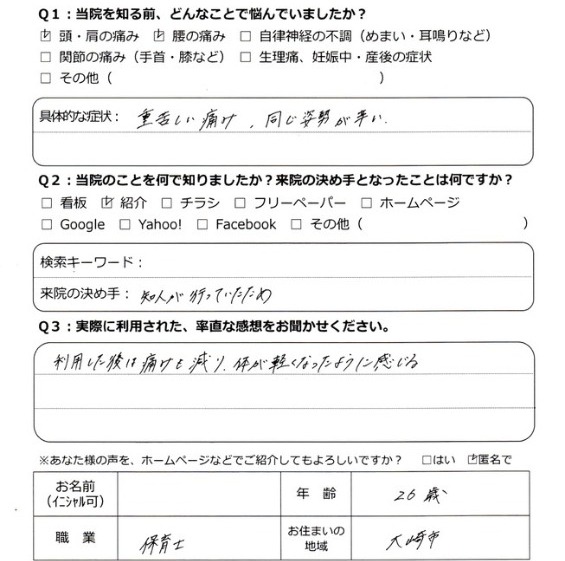 Q1:当院を知る前、どんなことで悩んでいましたか?
☑ 頭・肩の痛み ☑ 腰の痛み □ 自律神経の不調(めまい・耳鳴りなど)
□ 関節の痛み(手首・膝など) □ 生理痛、妊娠中・産後の症状
□ その他( )
具体的な症状: 重苦しい痛み、同じ姿勢が辛い.
Q2:当院のことを何で知りましたか?来院の決め手となったことは何ですか?
□ 看板 ☑ 紹介 □ チラシ □ フリーペーパー □ ホームページ
□ Google □ Yahoo! □ Facebook □ その他( )
検索キーワード:
来院の決め手: 知人が行っていたため
Q3:実際に利用された、率直な感想をお聞かせください。
利用した後は痛みも減り、体が軽くなったように感じる
※あなた様の声を、ホームページなどでご紹介してもよろしいですか? □はい ☑匿名で
お名前 年 齢 26 歳
(イニシャル可)
職 業 保育士 お住まいの 大崎市
地域